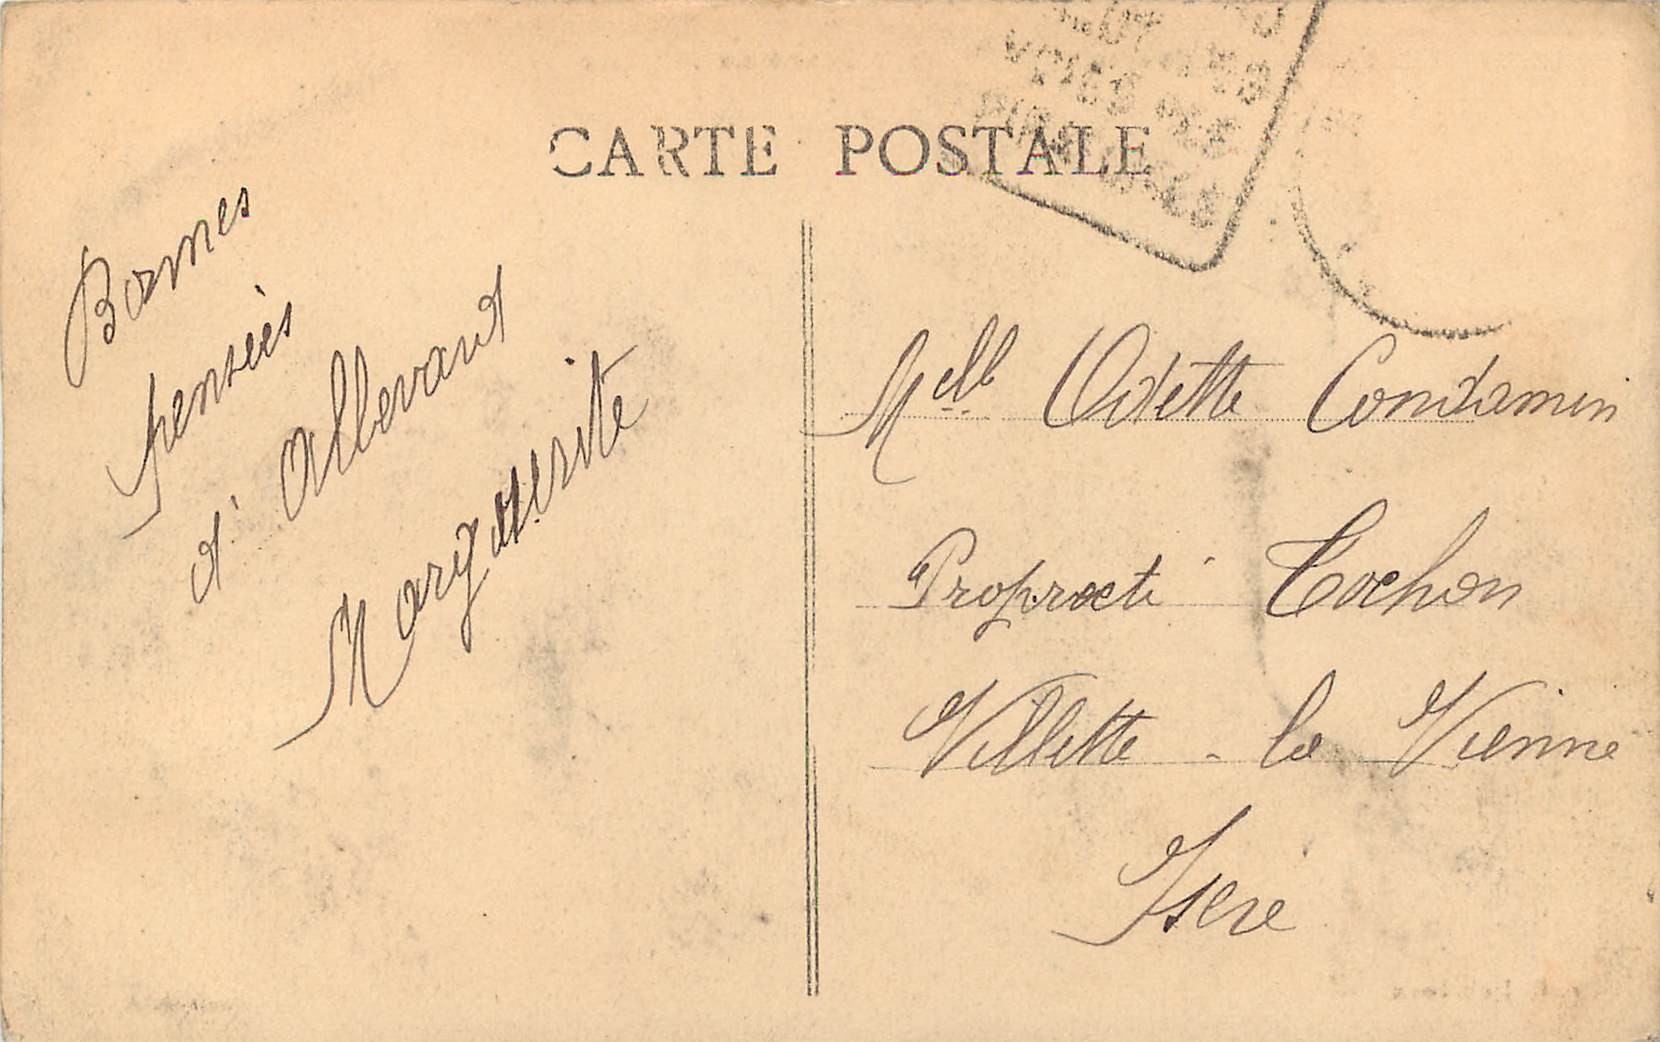 CARTE POSTALE
Bonnes
pensées
d'Allevard
Marguerite
Melle Odette Condamin
Propriété Cochon
Villette - le Vienne
Isère